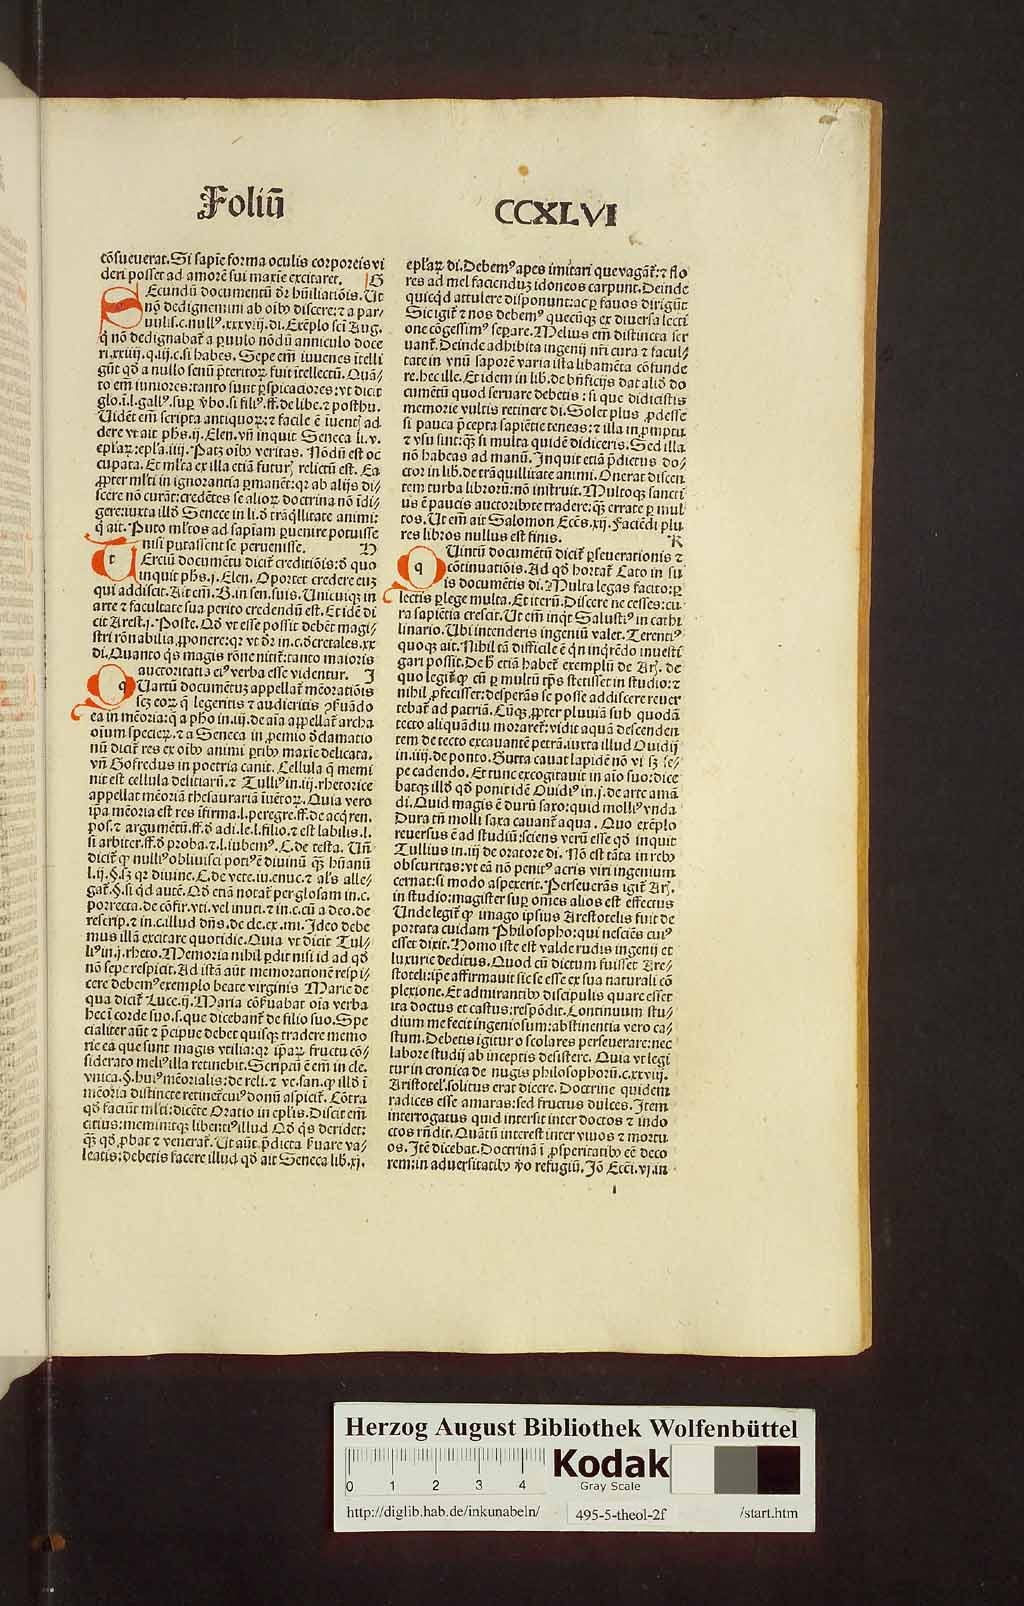 Foliū CCXLVI
cōsueuerat. Si sapiē forma oculis corporeis vi
deri posset ad amorē sui maxīe excitaret. G
SEcundū documentū dr̄ hūiliatiōis. Ut
nō dedignemini ab oīb⁹ discere: ⁊ a par/
uulis. c. null⁹. xxxviij. di. Exēplo scī Aug.
q̄ nō dedignabat̄ a ꝑuulo nōdū anniculo doce
ri. xxiiij. q. iij. c. si habes. Sepe em̄ iuuenes ītelli
gūt qd̓ a nullo senū p̄teritoꝝ fuit ītellectū. Quā/
to em̄ iuniores: tanto sunt ꝑspicaciores: vt dicit
glo. ī. l. gall⁹. suꝑ v̓bo. si fili⁹. ff. de libe. ⁊ posthu.
Uidēt em̄ scripta antiquoꝝ: ⁊ facile ē iuentꝭ ad
dere vt ait phs. ij. Elen. vn̄ inquit Seneca li. v.
epl̄aꝝ: epl̄a. iiij. Patꝫ oīb⁹ veritas. Nōdū est oc
cupata. Et ml̄ta ex illa etiā futurꝭ relictū est. Ea
ꝓpter ml̄ti in ignorantia ꝑmanēt: qꝛ ab alijs di/
scere nō curāt: credētes se alioꝝ doctrina nō īdi/
gere: iuxta illd̓ Senece in li. d̓ trāq̄llitate animi:
q̄ ait. Puto ml̄tos ad sapīam ꝑuenire potuisse
nisi putassent se peruenisse. H
TErciū documētū dicit̄ creditiōis: d̓ quo
inquit phs. j. Elen. Oportet credere euꝫ
qui addiscit. Ait em̄. B. in sen. suis. Unicuiqꝫ in
arte ⁊ facultate sua perito credendū est. Et idē di
cit Arest. j. Poste. Qd̓ vt esse possit debēt magi/
stri rōnabilia ꝓponere: qꝛ vt dr̄ in. c. d̓cretales. xx
di. Quanto q̄s magis rōne nitit̄: tanto maioris
auctoritatis ei⁹ verba esse videntur. I
QUartū documētuꝫ appellat̄ mēoratiōis
scꝫ eoꝝ q̄ legeritis ⁊ audieritis ꝯẜuādo
ea in mēoria: q̄ a pho in. iij. de aīa appellat̄ archa
oīum specieꝝ. ⁊ a Seneca in ꝓemio d̓clamatio
nū dicit̄ res ex oīb⁹ animi ꝑtib⁹ maxīe delicata.
vn̄ Gofredus in poetria canit. Cellula q̄ memi
nit est cellula delitiarū. ⁊ Tulli⁹ in. iij. rhetorice
appellat mēoriā thesaurariā īuētoꝝ. Quia vero
ip̄a mēoria est res īfirma. l. peregre. ff. de acq̄ ren.
pos. ⁊ argumētū. ff. d̓ adi. le. l. filio. ⁊ est labilis. l.
si arbiter. ff. d̓ proba. ⁊. l. iubem⁹. C. de testa. Un̄
dicit̄ ꝙ nulli⁹ obliuisci poti⁹ ē diuinū q̄ꝫ hūanū
l. ij. §. sꝫ qꝛ diuine. C. de vete. iu. enuc. ⁊ al̓s alle/
gat̄. §. si qd̓ autē. Qd̓ etiā notat̄ per glosam in. c.
porrecta. de cōfir. vti. vel inuti. ⁊ in. c. cū a deo. de
rescrip. ⁊ in. c. illud dn̄s. de cle. ex. mi. Ideo debe
mus illā excitare quotidie. Quia vt dicit Tul/
li⁹ in. j. rheto. Memoria nihil ꝑdit nisi id ad qd̓
nō sepe respicit. Ad istā aūt memorationē respi/
cere debem⁹ exemplo beate virginis Marie de
qua dicit̄ Luce. ij. Maria cōẜuabat oīa verba
hec ī corde suo. s. que dicebant̄ de filio suo. Spe
cialiter aūt ⁊ p̄cipue debet quisqꝫ tradere memo
rie ea que sunt magis vtilia: qꝛ ip̄aꝝ fructu cō/
siderato meli⁹ illa retinebit. Scriptū ē em̄ in cle.
vnica. §. hui⁹ mēorialis: de reli. ⁊ ve. san. ꝙ illd̓ ī
mēoria distincte retinet̄ cui⁹ donū aspicit̄. Cōtra
qd̓ faciūt ml̄ti: dicēte Oratio in epl̄is. Discit em̄
citius: meminitqꝫ libenti⁹ illud Qd̓ q̄s deridet:
q̄ꝫ qd̓ ꝓbat ⁊ venerat̄. Ut aūt p̄dicta ẜuare va/
leatis: debetis facere illud qd̓ ait Seneca lib. xj.
epl̄aꝝ di. Debem⁹ apes imitari que vagāt̄: ⁊ flo
res ad mel faciendūꝫ idoneos carpunt. Deinde
quicq̄d attulere disponunt: ac ꝑ fauos dirigūt.
Sic igit̄ ⁊ nos debem⁹ quecūqꝫ ex diuersa lecti
one cōgessim⁹ seꝑare. Melius em̄ distincta ser
uant̄. Deinde adhibita ingenij nr̄i cura ⁊ facul/
tate in vnū saporē varia ista libamēta cōfunde
re. hec ille. Et idem in lib. de bn̄ficijs dat aliō do
cumētū quod seruare debetis: si que didicistis
memorie vultis retinere di. Solet plus ꝓdesse
si pauca p̄cepta sapiētie teneas: ⁊ illa in ꝓmptu
⁊ vsu sint: q̄ꝫ si multa quidē didiceris. Sed illa
nō habeas ad manū. Inquit etiā p̄dictus do/
ctor in lib. de trāquillitate animi. Onerat discen
tem turba libroꝝ: nō instruit. Multoqꝫ sancti
us ē paucis auctorib⁹ te tradere: q̄ꝫ errate ꝑ mul
tos. Ut em̄ ait Salomon Eccs. xij. Faciēdi plu
res libros nullus est finis. K
QUintū documētū dicit̄ ꝑseuerationis ⁊
cōtinuatiōis. Ad qd̓ hortat̄ Cato in su
is documētis di. Multa legas facito: ꝑ
lectis ꝑlege multa. Et iterū. Discere ne cesses: cu
ra sapiētia crescit. Ut em̄ inqt̄ Salusti⁹ in cathi
linario. Ubi intenderis ingeniū valet. Terenti⁹
quoqꝫ ait. Nihil tā difficile ē qn̄ inq̄rēdo inuesti
gari possit. Deb̓ etiā habet̄ exemplū de Ar̄. de
quo legit̄ ꝙ cū ꝑ multū tp̄s stetisset in studio: ⁊
nihil ꝓfecisset: desperās se posse addiscere reuer
tebat̄ ad patriā. Cūqꝫ ꝓpter pluuiā sub quodā
tecto aliquādiu moraret̄: vidit aquā descenden
tem de tecto excauantē petrā. iuxta illud Ouidij
in. iiij. de ponto. Gutta cauat lapidē nō vi sꝫ se/
pe cadendo. Et tunc excogitauit in aīo suo: dice
batqꝫ illd̓ qd̓ ponit idē Ouidi⁹ in. j. de arte amā
di. Quid magis ē durū saxo: quid molli⁹ vnda
Dura tn̄ molli saxa cauant̄ aqua. Quo exēplo
reuersus ē ad studiū: sciens verū esse qd̓ inquit
Tullius in. iij de oratore di. Nō est tāta in reb⁹
obscuritas: vt eā nō penit⁹ acris viri ingenium
cernat: si modo aspexerit. Perseuerās igit̄ Ar̄.
in studio: magister suꝑ om̄es alios est effectus
Unde legit̄ ꝙ imago ipsius Arestotelis fuit de
portata cuidam Philosopho: qui nesciēs cui⁹
esset dixit. Homo iste est valde rudis ingenij et
luxurie deditus. Quod cū dictum fuisset Are/
stoteli: ip̄e affirmauit sic se esse ex sua naturali cō
plexione. Et admirantib⁹ discipulis quare esset
ita doctus et castus: respōdit. Continuum stu/
dium me fecit ingeniosum: abstinentia vero ca/
stum. Debetis igitur o scolares perseuerare: nec
labore studij ab inceptis desistere. Quia vt legi
tur in cronica de nugis philosophorū. c. xxviij.
Aristotel̓. solitus erat dicere. Doctrine quidem
radices esse amaras: sed fructus dulces. Item
interrogatus quid intersit inter doctos ⁊ indo
ctos rn̄dit. Quātū interest inter viuos ⁊ mortu
os. Itē dicebat. Doctrinā ī ꝓsperitatib⁹ eē deco
rem: in aduersitatib⁹ v̓o refugiū. Iō Ecci. vj. in
Herzog August Bibliothek Wolfenbüttel
0 1 2 3 4
Kodak
Gray Scale
http://diglib.hab.de/inkunabeln/ 495-5-theol-2f /start.htm